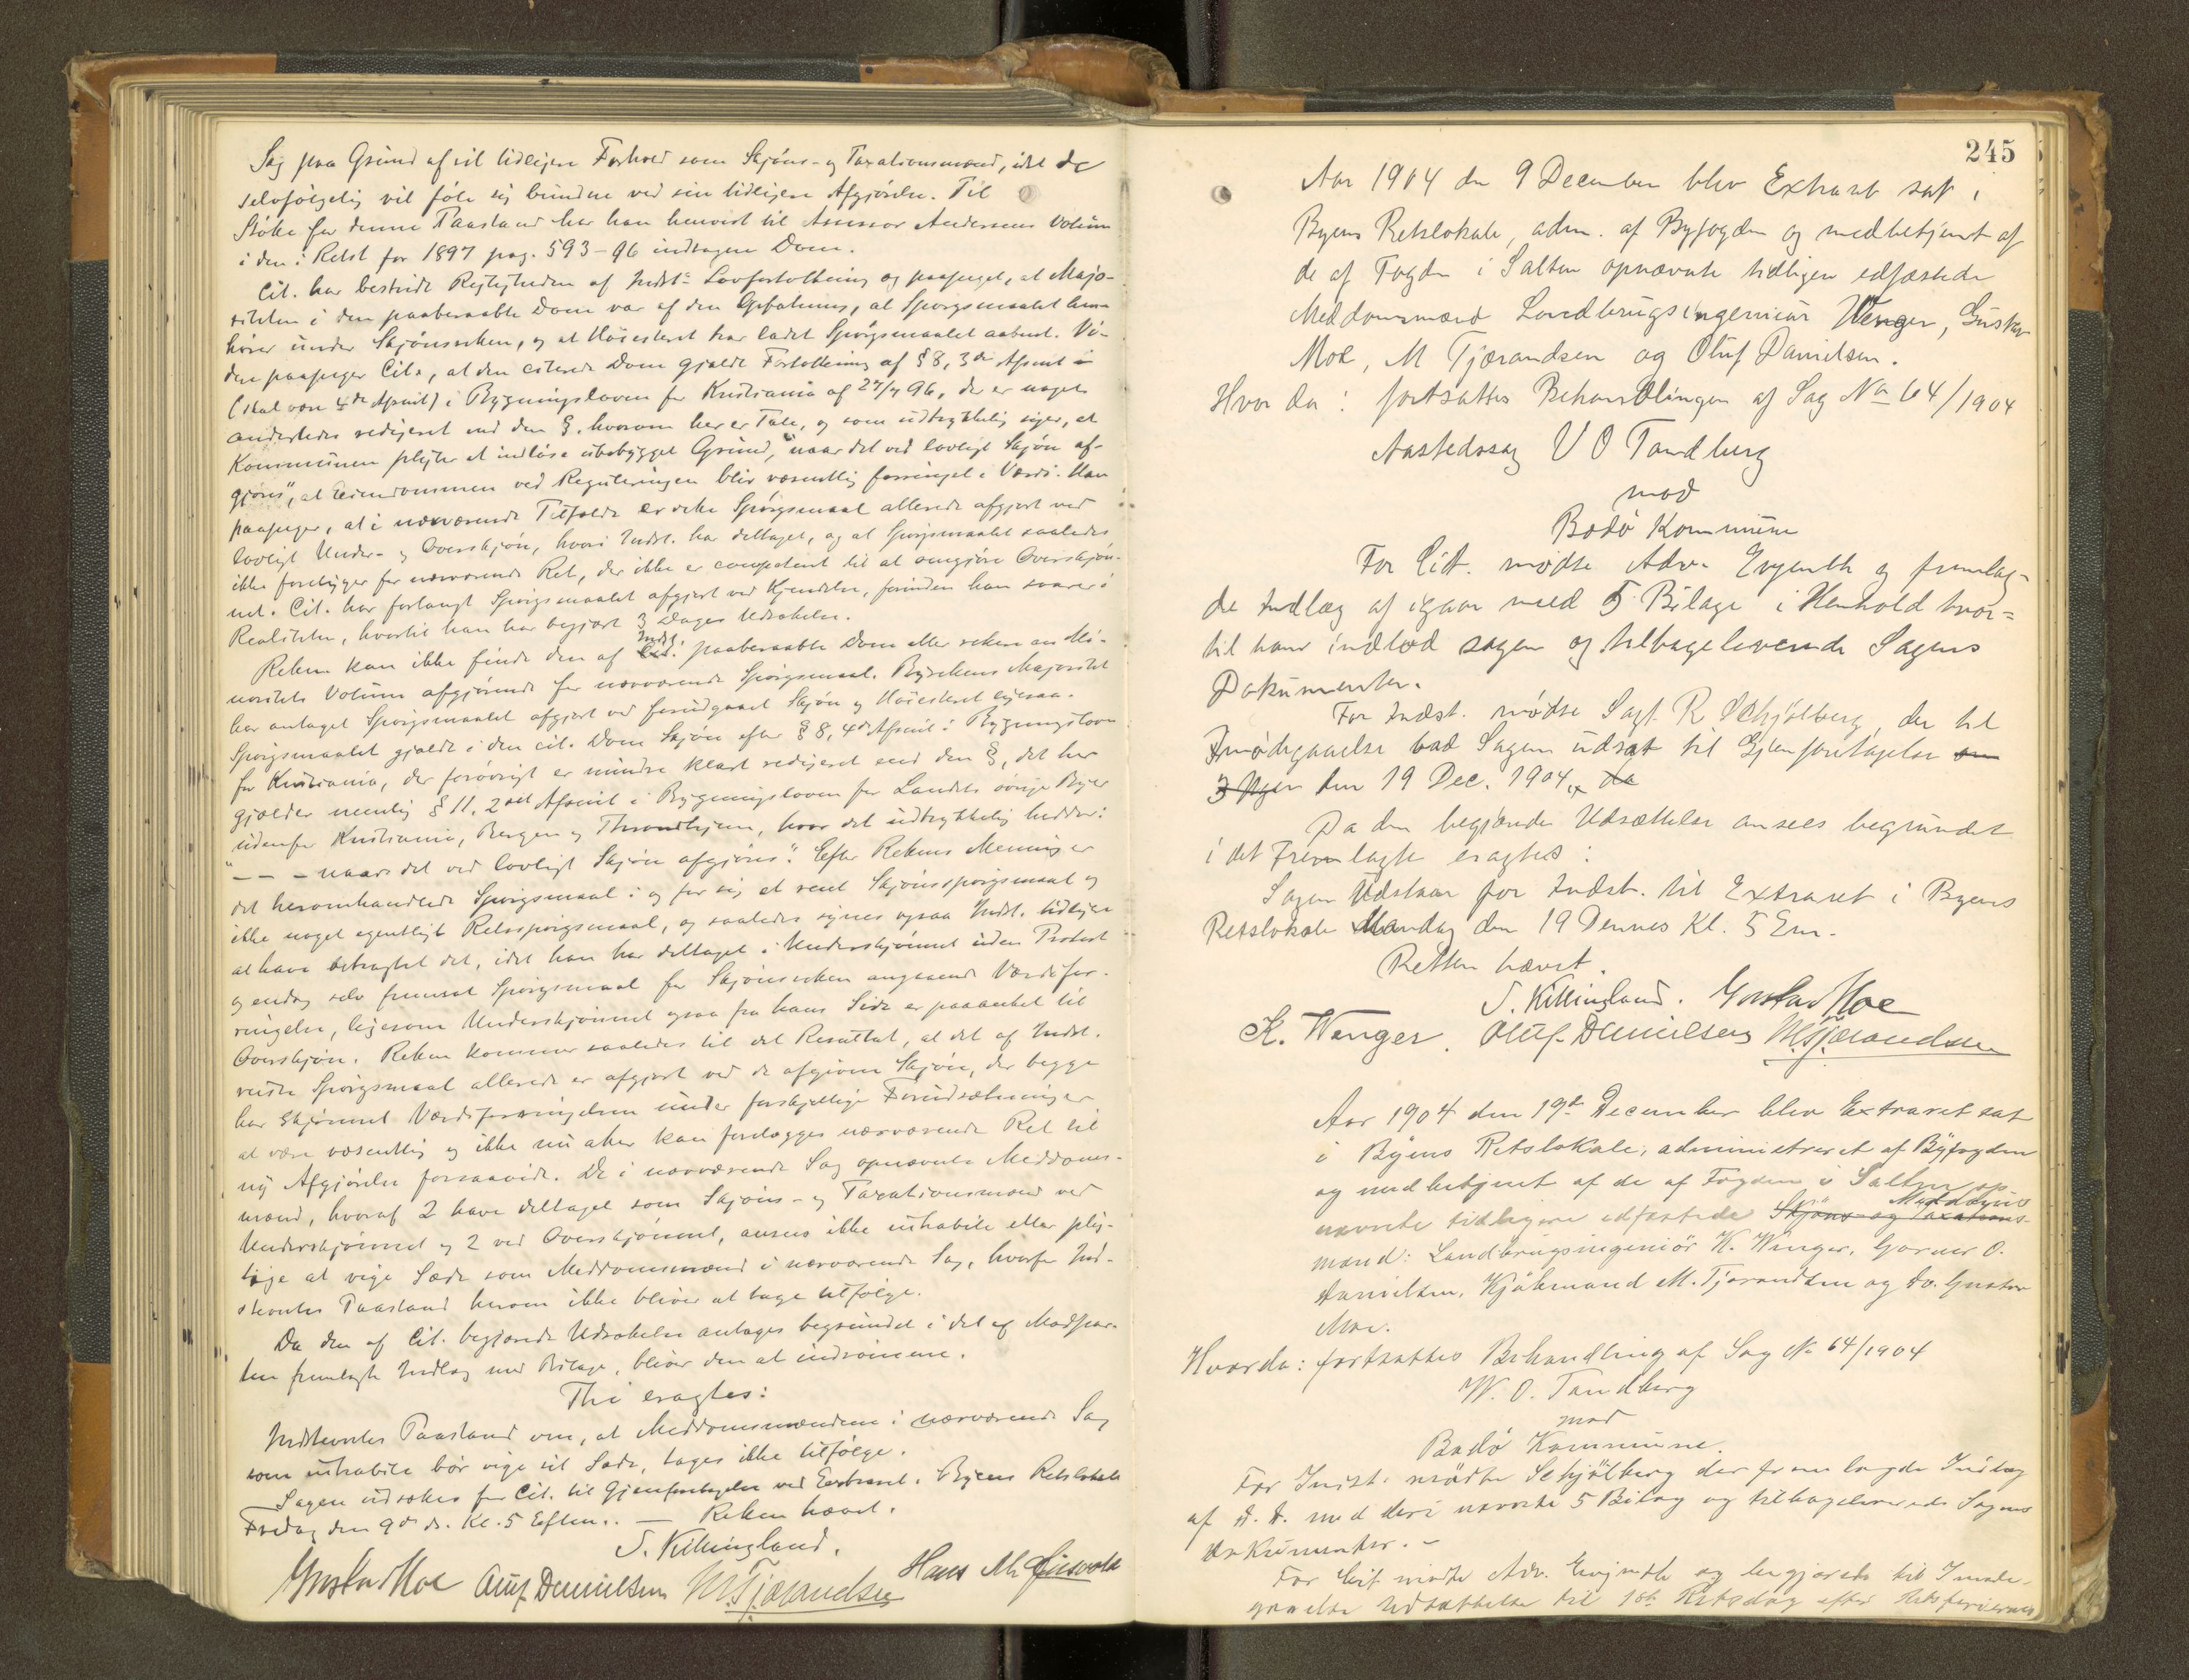 Sag paa Grund af sit tidligere Forhold som Skjøns- og Taxationsmænd, idet de
selvfølgelig vil føle sig bundne ved sin tidligere Afgjørelse. Til
Støtte for denne Paastand har han henvist til Assessor Andersens Votum
i den i Retst for 1897 pag. 593-96 indtagne Dom.
Cit. har bestridt Rigtigheden af Indst:s Lovfortolkning og paapeget, at Majo-
riteten i den paaberaabte Dom var af den Opfatning, at Spørgsmaalet hen-
hører under Skjønsretten, og at Høiesteret har ladet Spørgsmaalet aabent. Vi-
dere paapeger Cit., at den citerede Dom gjaldt Fortolkning af § 8, 3die Afsnit i
(skal være 4de Afsnit) i Bygningsloven for Kristiania af 27/7 96, der er noget
anderledes redigeret end den §, hvorom her er Tale, og som udtrykkelig siger, at
Kommunen pligter at indløse ubebygget Grund, "naar det ved lovligt Skjøn af-
gjøres", at Eiendommen ved Reguleringen blir væsentlig forringet i Værdi. Han
paapeger, at i nærværende Tilfælde er dette Spørgsmaal allerede afgjort ved
lovligt Under- og Overskjøn, hvori Indst. har deltaget, og at Spørgsmaalet saaledes
ikke foreligger for nærværende Ret, der ikke er competent til at omgjøre Overskjøn-
net. Cit. har forlangt Spørgsmaalet afgjort ved Kjendelse, forinden han svarer i
Realiteten, hvortil han har begjært 3 Dages Udsættelse.
Retten kan ikke finde den af Cit. Indst. paaberaabte Dom eller rettere en Mi-
noritets Votum afgjørende for nærværende Spørgsmaal. Byrettens Majoritet
har antaget Spørgsmaalet afgjort ved forudgaaet Skjøn og Høiesteret ligesaa.
Spørgsmaalet gjaldt i den cit. Dom Skjøn efter § 8, 4de Afsnit i Bygningsloven
for Kristiania, der forøvrigt er mindre klart redigeret end den §, det her
gjælder nemlig § 11, 2det Afsnit i Bygningsloven for Landets øvrige Byer
udenfor Kristiania, Bergen og Throndhjem, hvor det udtrykkelig hedder:
"- - - naar det ved lovligt Skjøn afgjøres". Efter Rettens Mening er
det heromhandlede Spørgsmaal i og for sig et rent Skjønsspørgsmaal og
ikke noget egentligt Retsspørgsmaal, og saaledes synes ogsaa Indst. tidligere
at have betragtet det, idet han har deltaget i Underskjønnet uden Protest
og endog selv fremsat Spørgsmaal for Skjønsretten angaaende Værdifor-
ringelse, ligesom Underskjønnet ogsaa fra hans Side er paaanket til
Overskjøn. Retten kommer saaledes til det Resultat, at det af Indst.
reiste Spørgsmaal allerede er afgjort ved de afgivne Skjøn, der begge
har skjønnet Værdiforringelsen under forskjellige Forudsætninger
at være væsentlig og ikke nu atter kan forelægges nærværende Ret til
ny Afgjørelse forsaavidt. De i nærværende Sag opnævnte Meddoms-
mænd, hvoraf 2 have deltaget som Skjøns- og Taxationsmænd ved
Underskjønnet og 2 ved Overskjønnet, ansees ikke inhabile eller plig-
tige at vige Sæde som Meddomsmænd i nærværende Sag, hvorfor Ind-
stevntes Paastand herom ikke bliver at tage tilfølge.
Da den af Cit. begjærede Udsættelse antages begrundet i det af Modpar-
ten fremlagte Indlæg med Bilage, bliver den at indrømme.
Thi eragtes:
Indstevntes Paastand om, at Meddomsmændene i nærværende Sag
som inhabile bør vige sit Sæde, tages ikke tilfølge.
Sagen udsættes for Cit. til Gjenforetagelse ved Extraret i Byens Retslokale
Fredag den 9de ds. Kl. 5 Eftm.. — Retten hævet.
S. Killingland.
Gustav Moe Oluf Danielsen M Tjærandsen Hans M.
245
Aar 1904 den 9 December blev Extraret sat i
Byens Retslokale, adm. af Byfogden og medbetjent af
de af Fogden i Salten opnævnte tidligere edfæstede
Meddomsmænd Landbrugsingeniør Wenger, Gustav
Moe, M Tjærandsen og Oluf Danielsen.
Hvor da: fortsattes Behandlingen af Sag No 64/1904
Aastedssag V O Tandberg
mod
Bodø Kommune
For Cit. mødte Adv. Evjenth og fremlag-
de Indlæg af igaar med 5 Bilage i Henhold hvor=
til han indlod sagen og tilbageleverede Sagens
Dokumenter.
For Indst. mødte Sagf. R Schjølberg, der til
Imødegaaelse bad Sagen udsat til Gjenforetagelse om
3 Uger den 19 Dec. 1904. da
Da den begjærede Udsættelse ansees begrundet
i det Fremlagte eragtes:
Sagen Udstaar for Indst. til Extraret i Byens
Retslokale Mandag den 19 Dennes Kl. 5 Em.
Retten hævet.
S. Killingland. Gustav Moe
K. Wenger. Oluf Danielsen M Tjærandsen
Aar 1904 den 19de December blev Extraret sat
i Byens Retslokale, administreret af Byfogden
og medbetjent af de af Fogden i Salten op-
nævnte tidligere edfæstede Skjøns- og Taxations- Meddoms
mænd: Landbrugsingeniør K. Wenger, Garver O.
Danielsen, Kjøbmand M. Tjærandsen og do. Gustav
Moe.
Hvorda: fortsattes Behandling af Sag No 64/1904
W. O. Tandberg
mod
Bodø Kommune.
For Indst. mødte Schjølberg der fremlagde Indlæg
af D. D. med deri nævnte 5 Bilag og tilbageleverede Sagens
Dokumenter. -
For Cit mødte Adv. Evjenth og begjærede til Imøde-
gaaelse Udsættelse til 1ste Retsdag efter Retsferierne